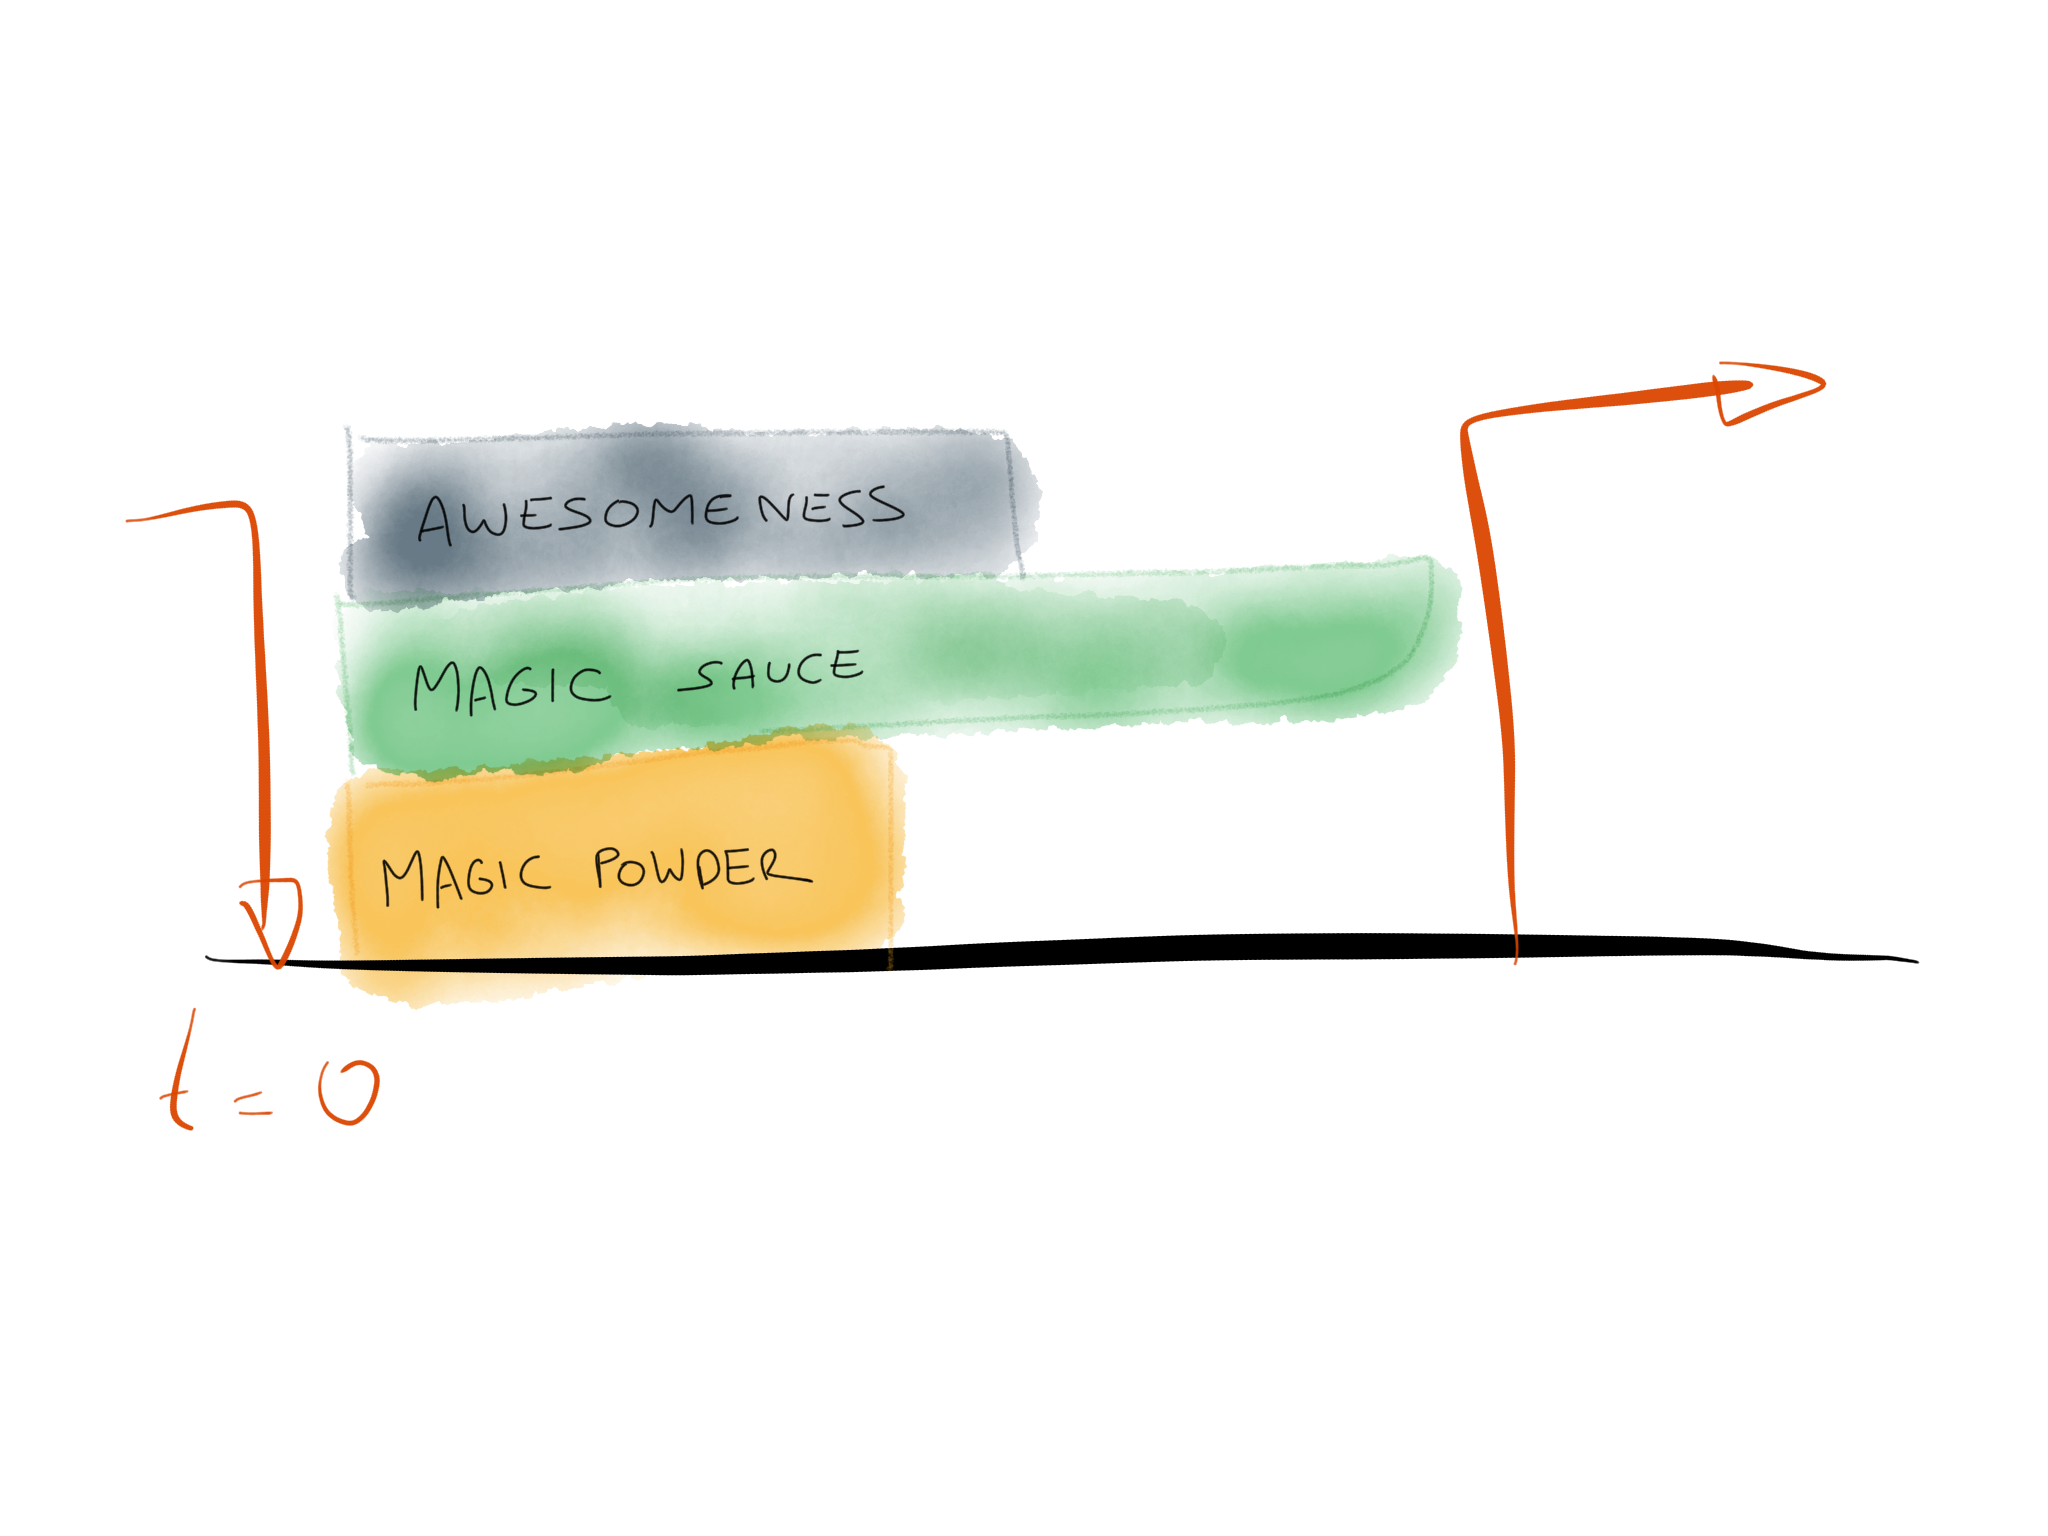 AWESOMENESS
MAGIC SAUCE
MAGIC POWDER
t = 0